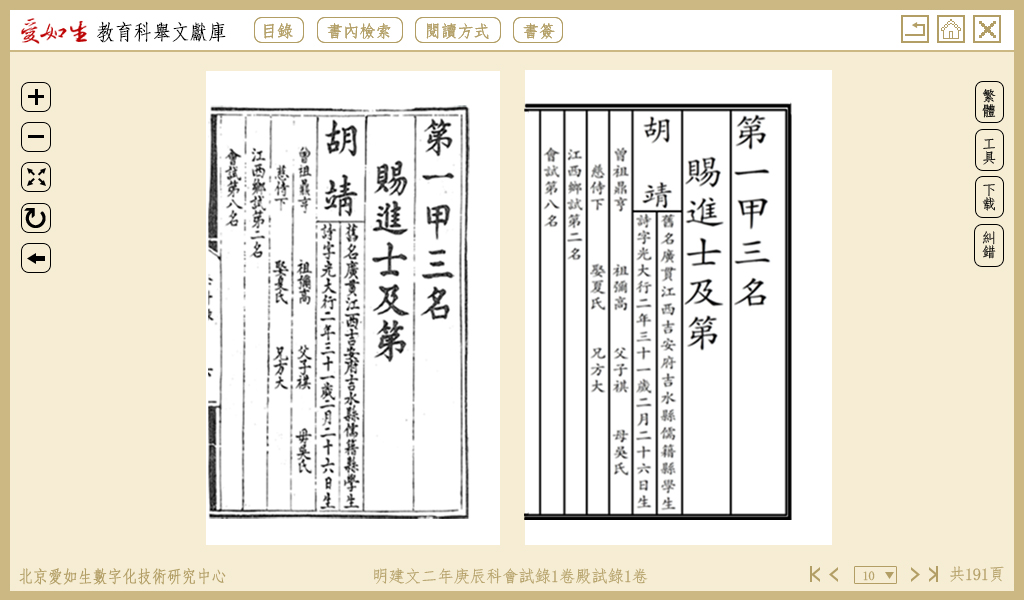 愛如生 教育科舉文獻庫
目錄
書內檢索
閱讀方式
書簽
繁體
工具
下载
糾錯
第一甲三名
賜進士及第
胡靖
舊名廣貫江西吉安府吉水縣儒籍縣學生
詩字光大行二年三十一歲二月二十六日生
曾祖鼎亨 祖彌高 父子祺 母吳氏
慈侍下 娶夏氏 兄方大
江西鄉試第二名
會試第八名
第一甲三名
賜進士及第
胡靖
舊名廣貫江西吉安府吉水縣儒籍縣學生
詩字光大行二年三十一歲二月二十六日生
曾祖鼎亨 祖彌高 父子祺 母吳氏
慈侍下 娶夏氏 兄方大
江西鄉試第二名
會試第八名
北京愛如生數字化技術研究中心
明建文二年庚辰科會試錄1卷殿試錄1卷
10
共191頁